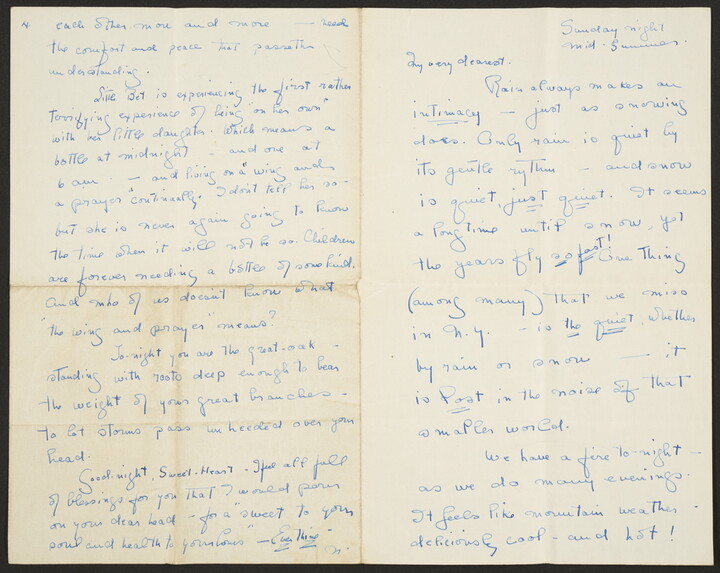 Sunday night
mid-Summer.
My very dearest.
Rain always makes an
intimacy — just as snowing
does. Only rain is quiet by
its gentle rythm — and snow
is quiet, just quiet. It seems
a long time until snow, yet
the years fly so fast! One thing
(among many) that we miss
in N.Y. - is the quiet, whether
by rain or snow — it
is lost in the noise of that
smaller world.
We have a fire to-night —
as we do many evenings.
It feels like mountain weather -
deliciously cool - and hot!
4.
each other more and more — need
the comfort and peace that passeth
understanding.
Little Bet is experiencing the first rather
terrifying experience of being "on her own"
with her little daughter. Which means a
bottle at midnight - and one at
6 am - and living on "a wing and
a prayer" continually. I don't tell her so -
but she is never again going to know
the time when it will not be so. Children
are forever needing a bottle of some kind.
And who of us doesn't know what
"the wing and prayer" means?
To-night you are the great-oak -
standing with roots deep enough to bear
the weight of your great branches -
to let storms pass unheeded over your
head.
Good-night, Sweet-Heart - I feel all full
of blessings for you that I would pour
on your dear head - for a sweet to your
soul and health to your bones" — Everything